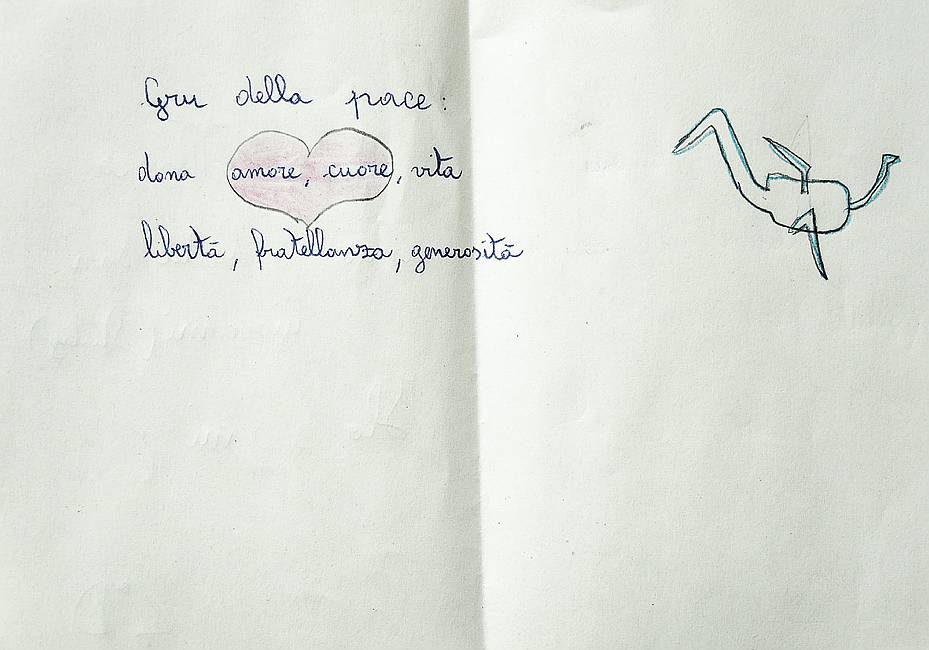 Gru della pace:
dona amore, cuore, vita
libertà, fratellanza, generosità